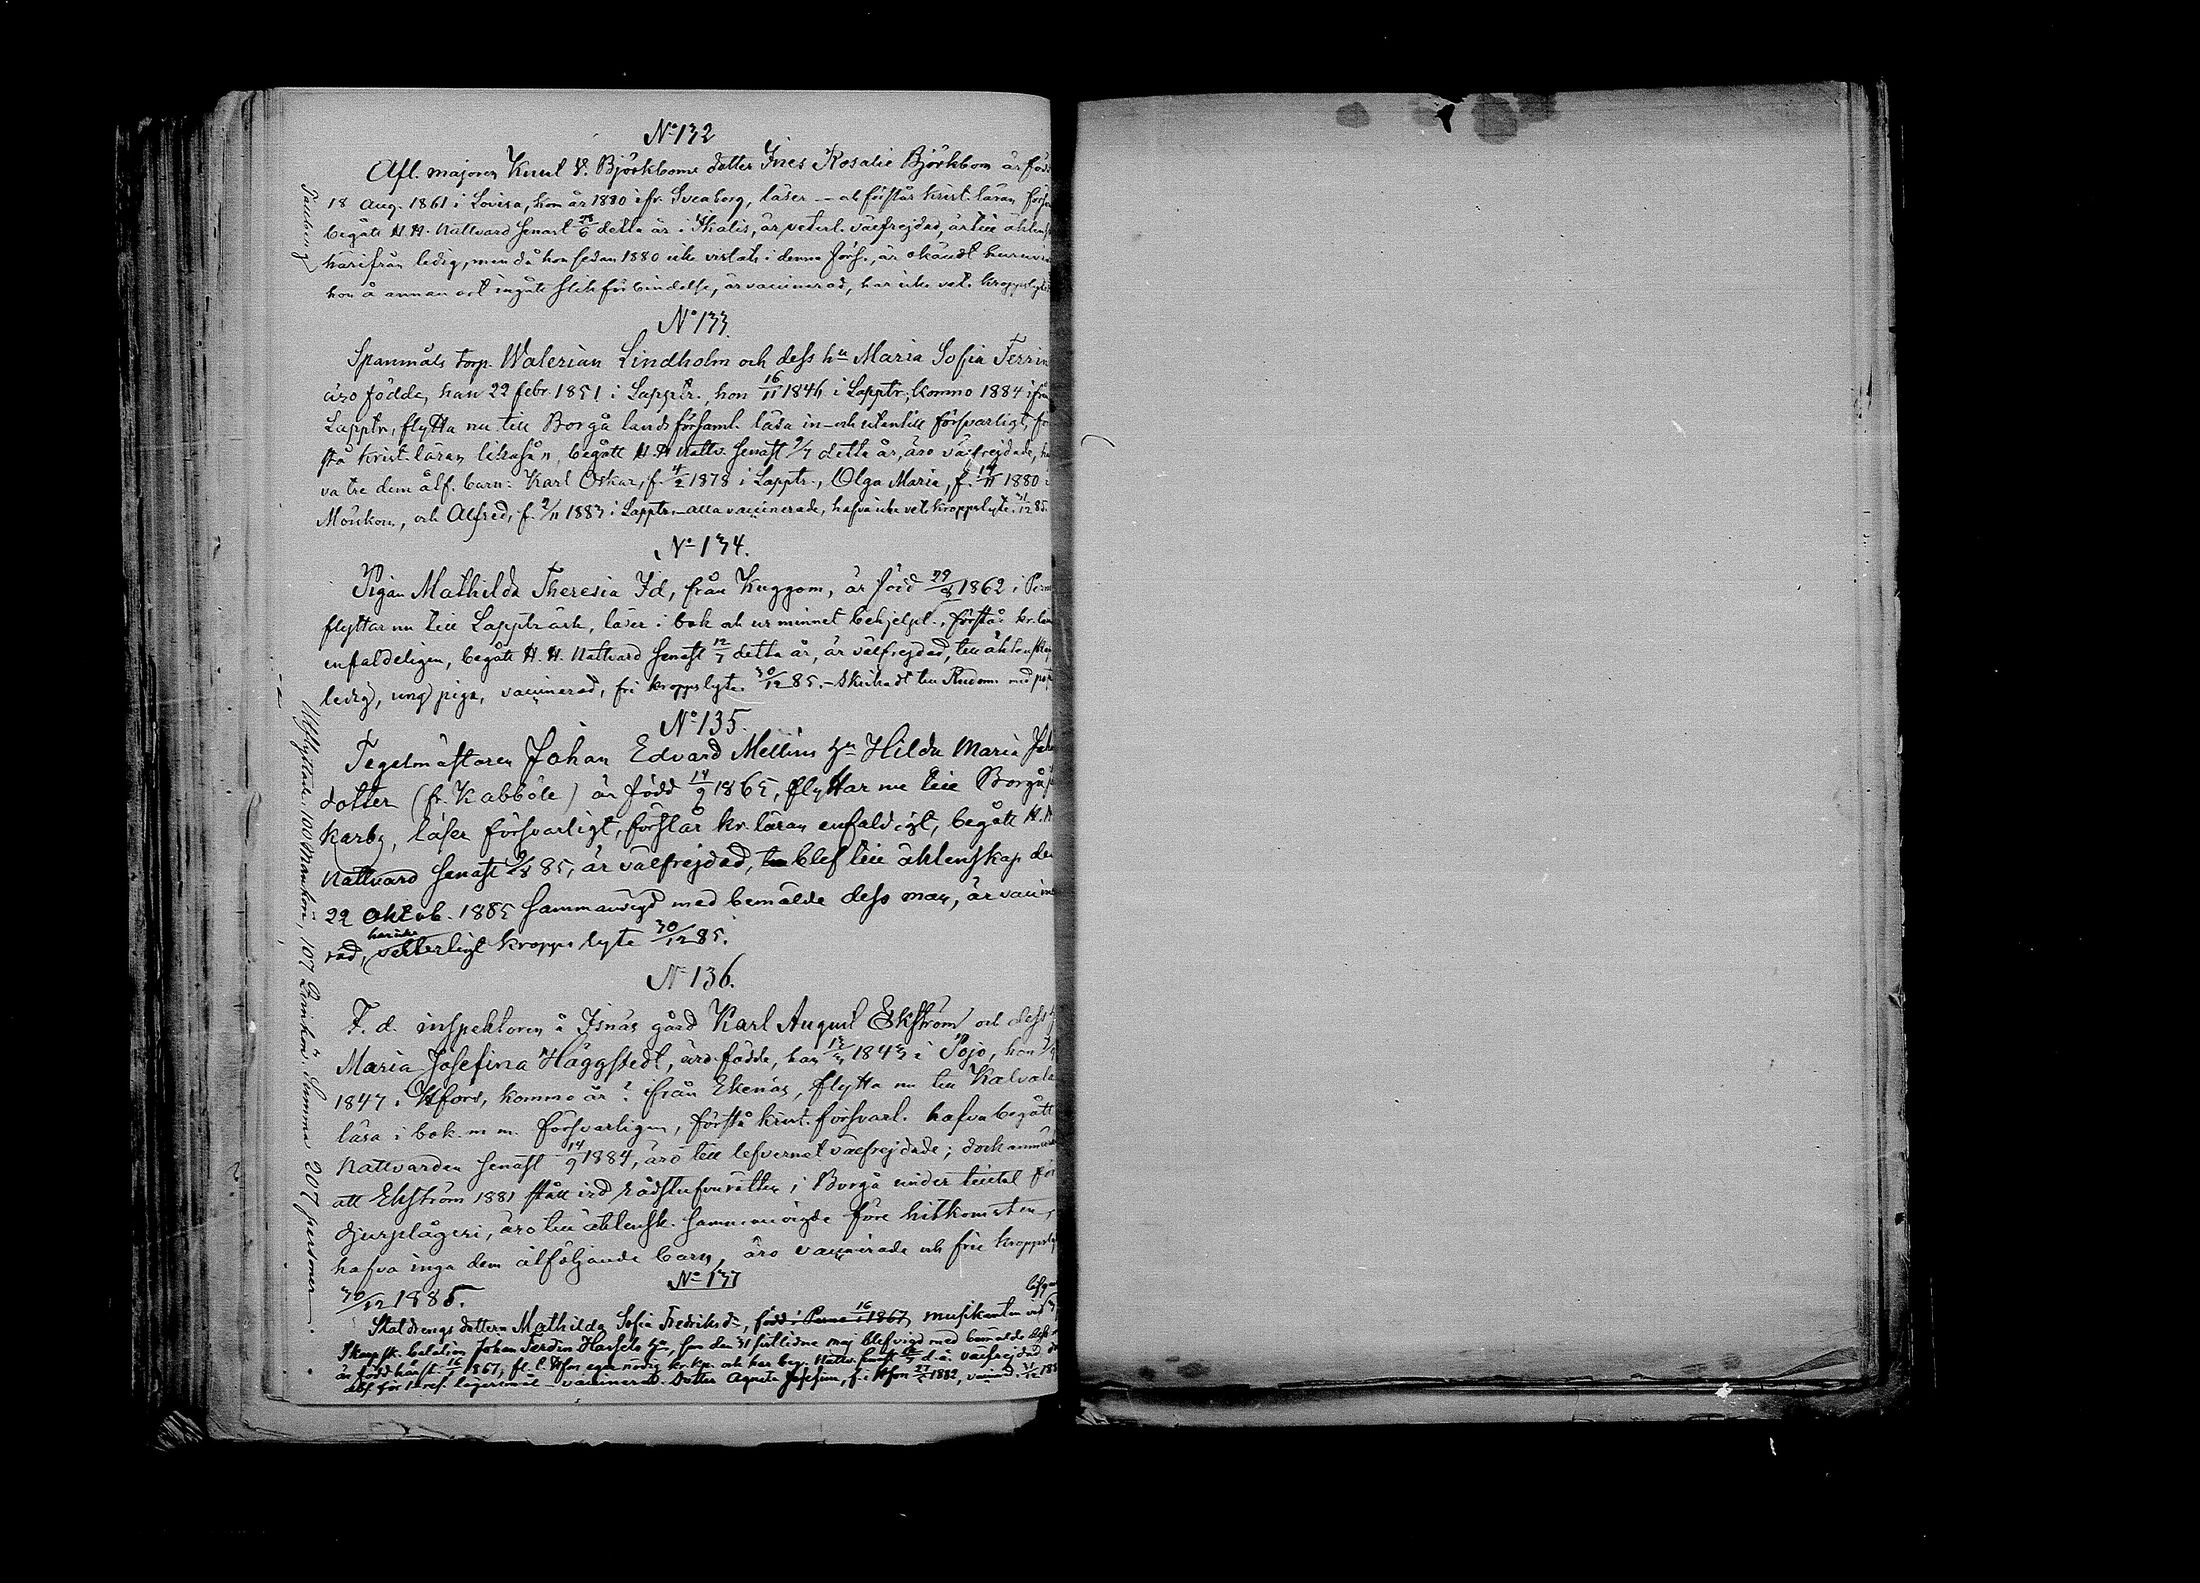 No 132
Afl. majoren Knut V. Björkboms dotter Ines Rosalie Björkbom är född
18 Aug. 1861 i Lovisa, kom år 1880 ifr. Sveaborg, läser och förstår krist. läran försv
begått H. H. Nattvard senast detta år i Ikalis, är veterl. välfrejdad, är till äktensk
härifrån ledig, men då hon sedan 1880 icke vistats i denna förs., är okändt huruvi
hon å annan ort ingått slik förbindelse, är vaccinerad, har icke vet. kroppslyte
No 133.
Spanmåls torp. Walerian Lindholm och dess hu Maria Sofia Ferrin
äro födda, han 22 febr. 1851 i Lapptr., hon 16/11 1846 i Lapptr; kommo 1884 ifrån
Lapptr, flytta nu till Borgå lands församl. läsa in- och utantill försvarligt, för
stå krist. läran likaså, begått H. H. Nattv. senast 9/7 detta år, äro välfrejdade, ha
va tre dem åtf. barn: Karl Oskar, f. 4/2 1878 i Lapptr., Olga Maria, f. 14/11 1880 i
Mörskom, och Alfred, f. 2/11 1883 i Lapptr. – alla vaccinerade, hafva icke vet. kroppslyte. 31/12 85.
No 134.
Pigan Mathilda Theresia Id, från Kuggom, är född 29/8 1862 i Perno
flyttar nu till Lappträsk, läser i bok och ur minnet behjelpl., förstår kr. läran
enfaldeligen, begått H. H. Nattvard senast 12/7 detta år, är välfrejdad, till äktenskap
ledig, ung piga, vaccinerad, fri kroppslyte. 30/12 85. – Skickadt till Rudom med post
No 135.
Tegelmästaren Johan Edvard Mellins hu Hilda Maria Joh
dotter (fr. Kabböle) är född 14/9 1865, flyttar nu till Borgå
Karby, läser försvarligt, förstår kr. läran enfaldigt, begått H. H.
Nattvard senast 85, är välfrejdad, blef till äktenskap den
22 Oktob. 1885 sammanvigd med bemälde dess man, är vaccine
rad, har icke vetterligt kroppslyte 30/12 85.
No 136.
F. d. inspektoren å Isnäs gård Karl August Ekström och dess h
Maria Josefina Häggstedt, äro födde, han 12/3 1843 i Pojo, hon
1847 i Hfors, kommo år ? ifrån Ekenäs, flytta nu till Kalvola
läsa i bok m. m. försvarligen, förstå krist. försvarl. hafva begått
Nattvarden senast 14/9 1884, äro till lefvernet välfrejdade; dock anmärkes
att Ekström 1881 stått vid rådstufvurätten i Borgå under tilltal för
djurplågeri, äro till äktensk. sammanvigde före hitkomsten,
hafva inga dem åtföljande barn, äro vaccinerade och frie kroppslyte
30/12 1885.
No 137
Staldrengs dottern Mathilda Sofia Fredriksdr, född i Perno 16/1 1867, musikanten vid
Skarpsk. bataljon Johan Ferdin. Hassels hu, som den 31 sistlidne maj blef vigd med bemälde dess
är född härst. 16/1 1867, fl. t. Hfors eger nödig kr. kp. och har beg. Nattv. senast d. å. välfrejdad
för 1 resl. lägersmål – vaccinerad. Dotter Agneta Josefina, f. i Hfors 1882, vaccined. 31/12 188
Tallbing
Utflyttade: 100 Mankön, 107 Qvinkön. Summa 207 personer.